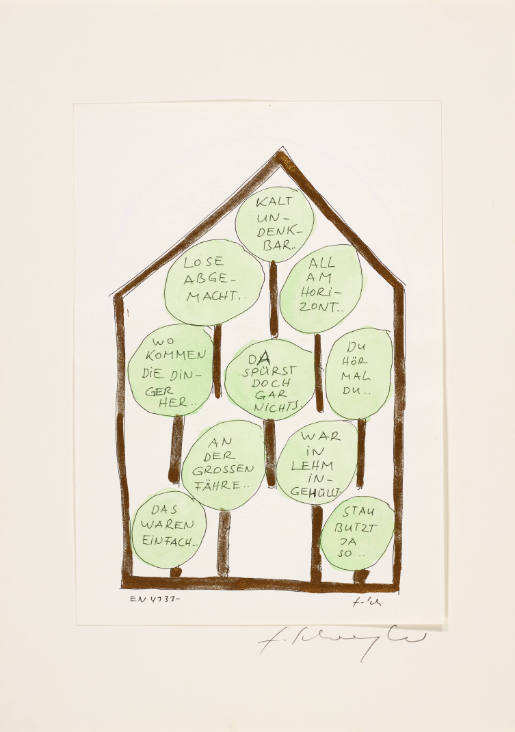 KALT
UN-
DENK-
BAR..
LOSE
ABGE-
MACHT..
ALL
AM
HORI-
ZONT..
WO
KOMMEN
DIE DIN-
GER
HER..
DA
SPÜRST
DOCH
GAR
NICHTS
DU
HÖR
MAL
DU..
AN
DER
GROSSEN
FÄHRE..
WAR
IN
LEHM
IN-
GEHÜLLT
DAS
WAREN
EINFACH..
STAU
BUTZT
JA
SO..